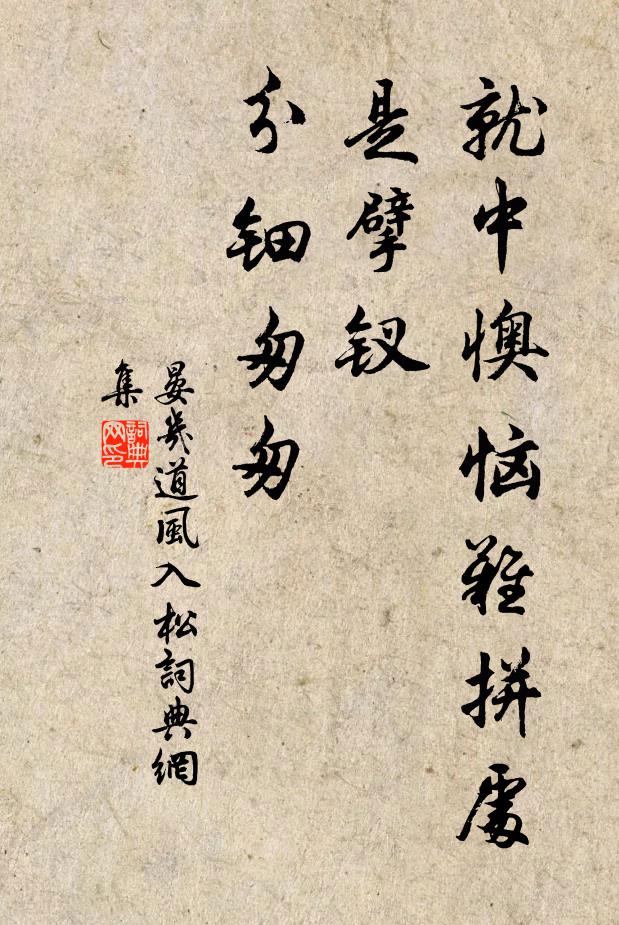 就中懊恼難拼處
是擘钗
分钿匆匆
晏幾道風入松詞典網
集
詞典
网印